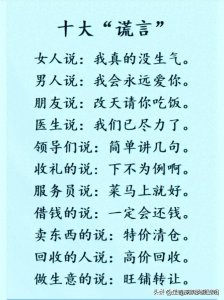 十大“谎言”
女人说：我真的没生气。
男人说：我会永远爱你。
朋友说：改天请你吃饭。
医生说：我们已尽力了。
领导们说：简单讲几句。
收礼的说：下不为例啊。
服务员说：菜马上就好。
借钱的说：一定会还钱。
卖东西的说：特价清仓。
回收的人说：高价回收。
做生意的说：旺铺转让。